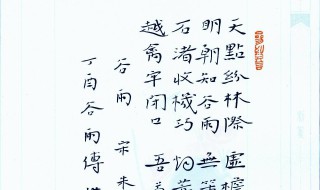 天點紛林際 虛檐
明朝知谷雨 無策
石渚收機巧
越禽牢閉口 吾
谷雨 宋 朱
丁酉谷雨傅